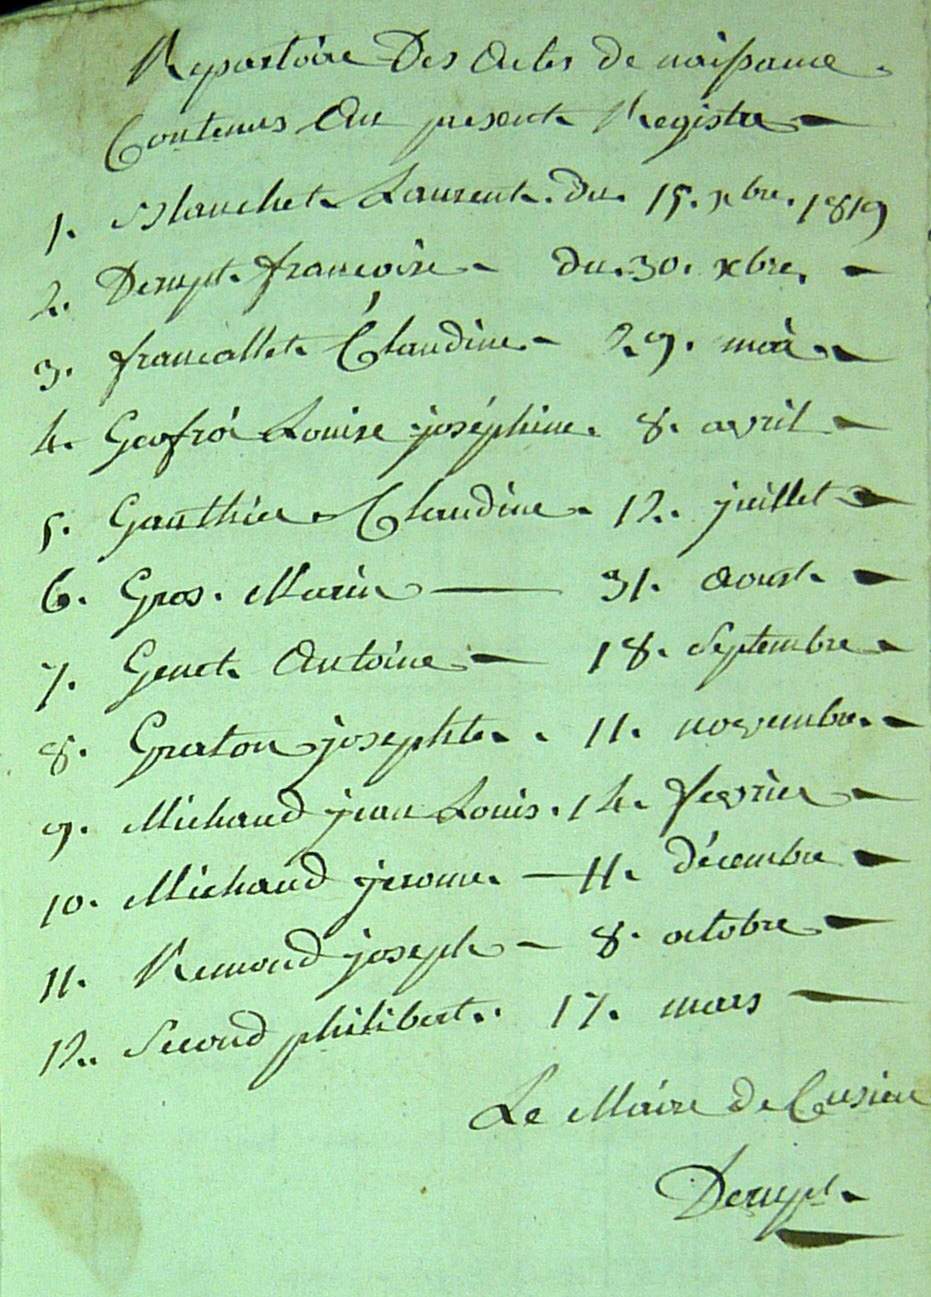 Repertoire Des Actes de naissance
Contenus Au present Registre
1. Blanchet Laurent. du. 15. xbre. 1819
2. Derupt francoise - du. 30. xbre.
3. francallet Claudine - 29. mai
4. Geofroi Louise joséphine. 8. avril
5. Gauthier Claudine - 12. juillet
6. Gros. Marie 31. Aoust
7. Genet Antoine 18. Septembre
8. Graton josephte. 11. novembre
9. Michaud jean Louis. 14. fevrier
10. Michaud jerome. 11. décembre
11. Remond joseph - 8. octobre
12. Second philibert. 17. mars
Le Maire de Cusieu
Derupt